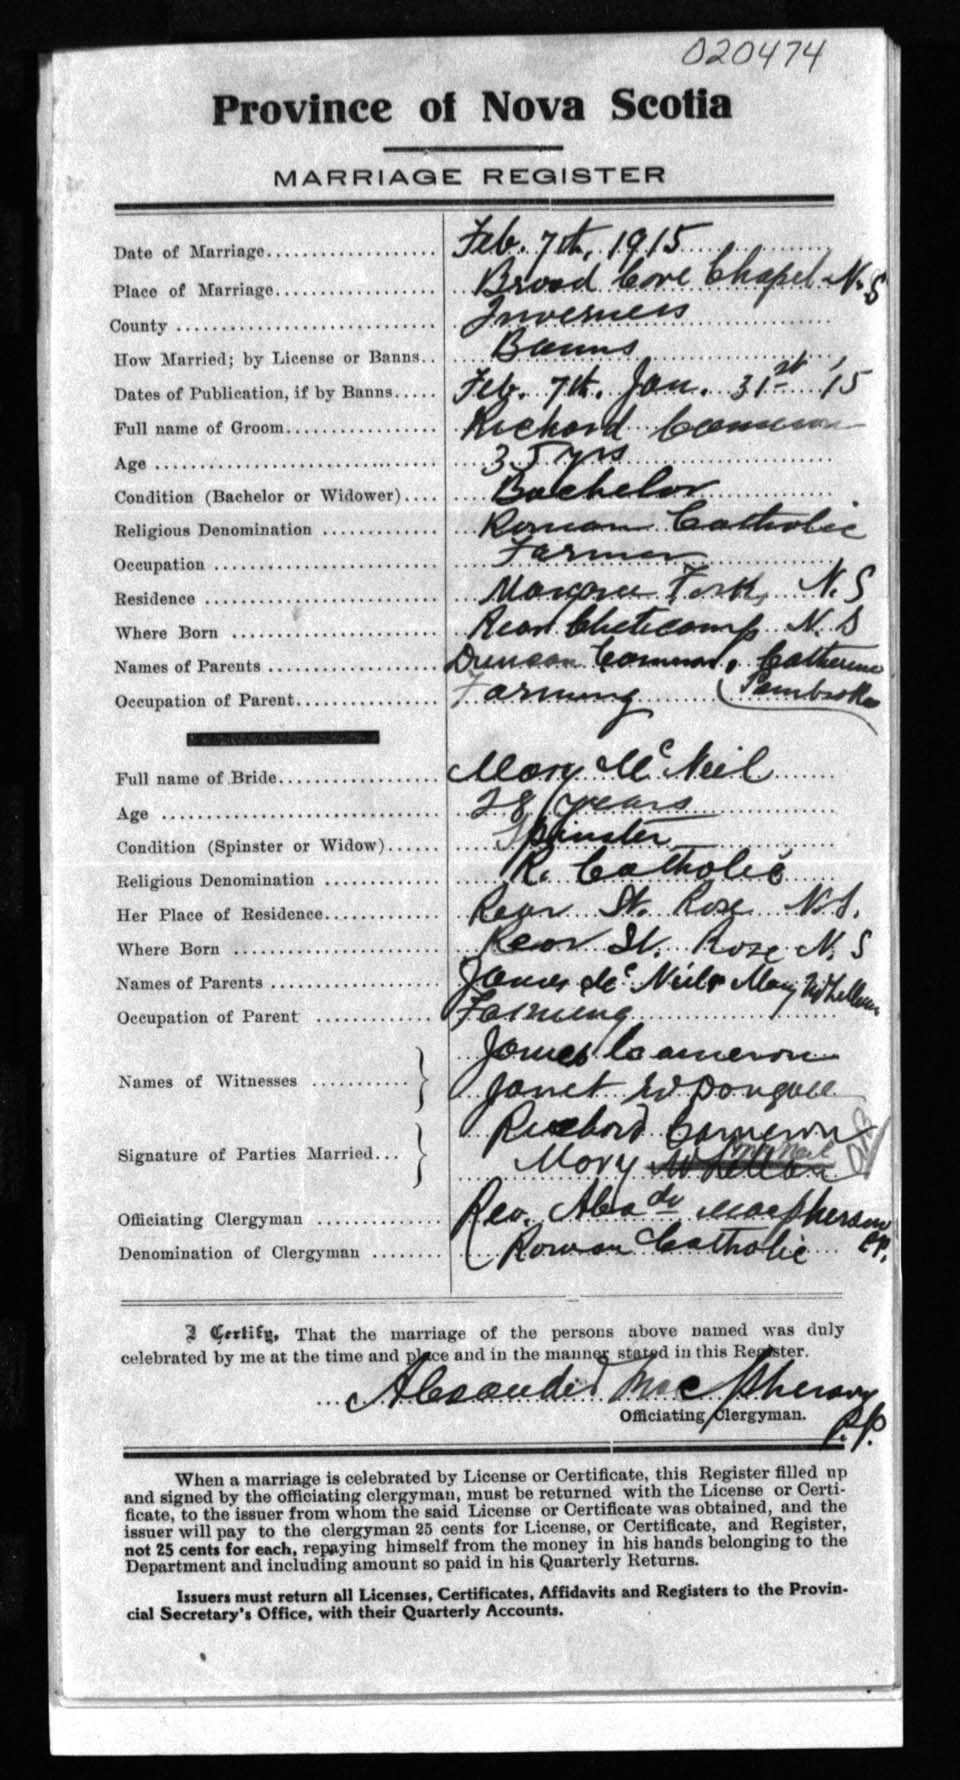 020474
Province of Nova Scotia
MARRIAGE REGISTER
Date of Marriage Feb. 7th, 1915
Place of Marriage Broad Cove Chapel N.S
County Inverness
How Married; by License or Banns Banns
Dates of Publication, if by Banns Feb. 7th. Jan. 31st '15
Full name of Groom Richard Cameron
Age 35 yrs
Condition (Bachelor or Widower) Bachelor
Religious Denomination Roman Catholic
Occupation Farmer
Residence N.S
Where Born Rear Cheticamp N.S
Names of Parents Duncan Cameron, Catherine
Occupation of Parent Farming (Pembroke
Full name of Bride Mary Mc Neil
Age 28 years
Condition (Spinster or Widow) Spinster
Religious Denomination R. Catholic
Her Place of Residence Rear St. Rose N.S.
Where Born Rear St. Rose N.S
Names of Parents James Mc Neil & Mary McLellan
Occupation of Parent Farming
Names of Witnesses James Cameron
Janet McDougall
Signature of Parties Married Richard Cameron
Mary McLellan McNeil
Officiating Clergyman Rev. Alexdr MacPherson P.P.
Denomination of Clergyman Roman Catholic
I Certify, That the marriage of the persons above named was duly
celebrated by me at the time and place and in the manner stated in this Register.
Alexander MacPherson
Officiating Clergyman. P.P.
When a marriage is celebrated by License or Certificate, this Register filled up
and signed by the officiating clergyman, must be returned with the License or Certi-
ficate, to the issuer from whom the said License or Certificate was obtained, and the
issuer will pay to the clergyman 25 cents for License, or Certificate, and Register,
not 25 cents for each, repaying himself from the money in his hands belonging to the
Department and including amount so paid in his Quarterly Returns.
Issuers must return all Licenses, Certificates, Affidavits and Registers to the Provin-
cial Secretary's Office, with their Quarterly Accounts.